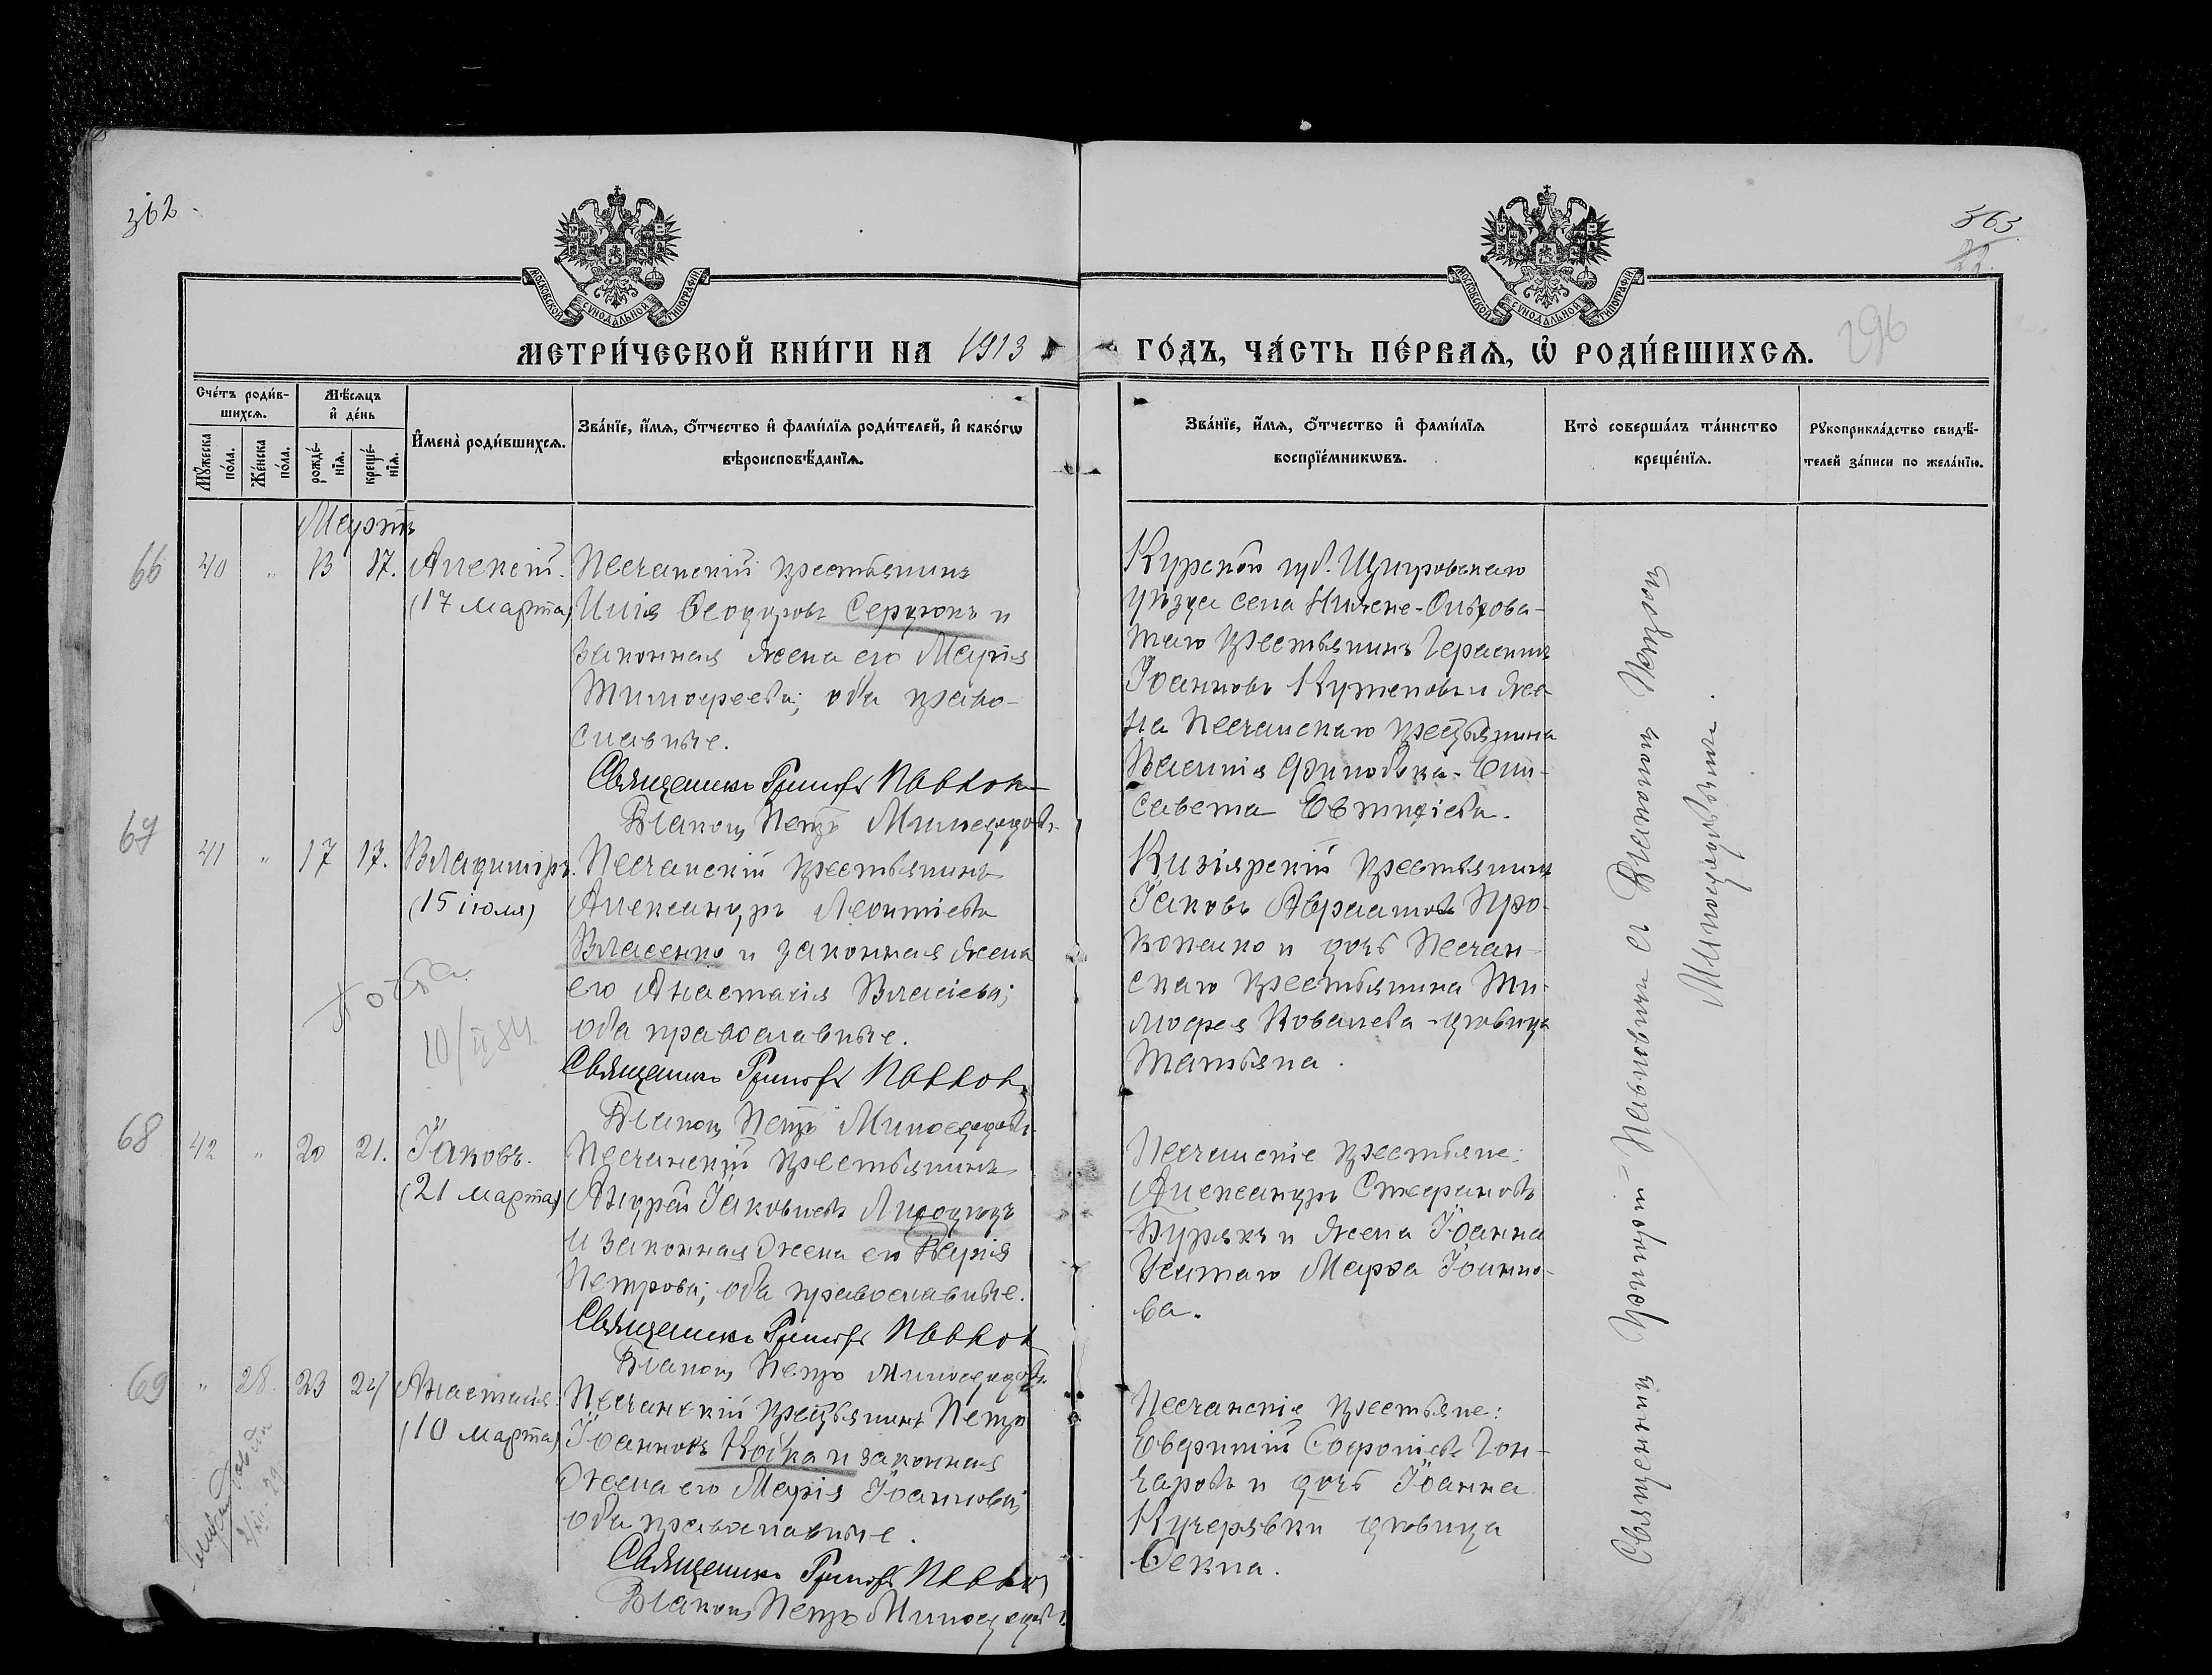 362
363
22.
296
МОСКОВСКОЙ СѴНОДАЛЬНОЙ ТИПОГРАФІИ
МОСКОВСКОЙ СѴНОДАЛЬНОЙ ТИПОГРАФІИ
МЕТРИ́ЧЕСКОЙ КНИ́ГИ НА 1913
ГО́ДЪ, ЧА́СТЬ ПЕ́РВАѦ, Ѡ҆ РОДИ́ВШИХСѦ.
Сче́тъ роди́в-
шихсѧ.
Мꙋ́жеска по́ла.
Же́нска по́ла.
Мѣ́сѧцъ
и҆ де́нь
рожде́-
нїѧ.
креще́-
нїѧ.
И҆мена̀ роди́вшихсѧ.
Зва́нїе, и҆́мѧ, ѻ҆́тчество и҆ фами́лїѧ роди́телей, и҆ како́гѡ
вѣроисповѣ́данїѧ.
Зва́нїе, и҆́мѧ, ѻ҆́тчество и҆ фами́лїѧ
воспрїе́мникѡвъ.
Кто̀ соверша́лъ та́инство
креще́нїѧ.
Рꙋкоприкла́дство свидѣ́-
телей за́писи по жела́нїю.
Мартъ
66
40 " 13 17. Алексій.
(17 марта)
Песчанскій крестьянинъ
Илія Ѳеодоровъ Сердюкъ и
законная жена его Марія
Тимофеева; оба право-
славные.
Священникъ Григорій Павлов
Діаконъ Петръ Милосердовъ
Курской губ. Щигровскаго
уѣзда села Нижне-Ольхова-
таго крестьянинъ Герасимъ
Іоанновъ Кутеповъ и же-
на Песчанскаго крестьянина
Василія Филобока - Ели-
савета Евтихіева.
67
41 " 17 17. Владиміръ.
(15 іюля)
Песчанскій крестьянинъ
Александръ Леонтіевъ
Власенко и законная жена
его Анастасія Власіева;
оба православные.
Священникъ Григорій Павлов
Діаконъ Петръ Милосердовъ
10/II 84
Кизіярскій крестьянинъ
Іаковъ Авраамовъ Про-
копенко и дочь Песчан-
скаго крестьянина Ти-
мофея Ковалева - дѣвица
Татьяна.
68
42 " 20 21. Іаковъ.
(21 марта)
Песчанскій крестьянинъ
Андрей Іаковлевъ Лиходидъ
и законная жена его Марія
Петрова; оба православные.
Священникъ Григорій Павлов
Діаконъ Петръ Милосердовъ
Песчанскіе крестьяне:
Александръ Стефановъ
Бурякъ и жена Іоанна
Усатаго Марѳа Іоанно-
ва.
69
" 28. 23 24 Анастасія.
(10 марта)
Песчанскій крестьянинъ Петръ
Іоанновъ Койка и законная
жена его Марія Іоаннова;
оба православные.
Священникъ Григорій Павлов
Діаконъ Петръ Милосердовъ
Песчанскіе крестьяне:
Евфимій Софроніевъ Гон-
чаровъ и дочь Іоанна
Кучерявки дѣвица
Ѳекла.
Священникъ Григорій Павловъ съ діакономъ Петромъ
Милосердовымъ.